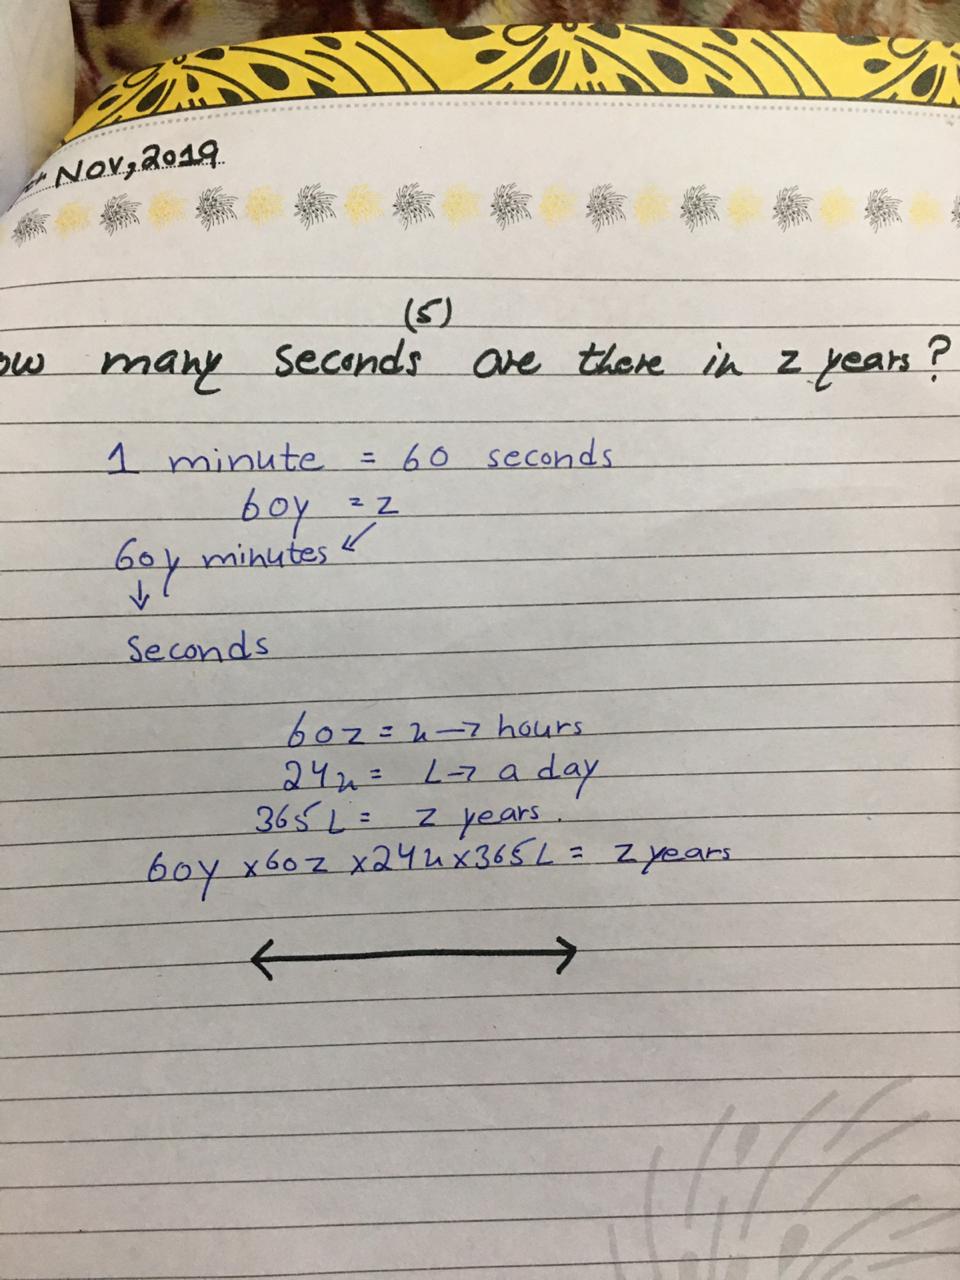 Nov, 2019
(5)
many seconds are there in z years?
1 minute = 60 seconds
60y = z
60y minutes ↙
↓
Seconds
60z = u → hours
24u = L → a day
365L = z years.
60y x60z x24u x365L = z years